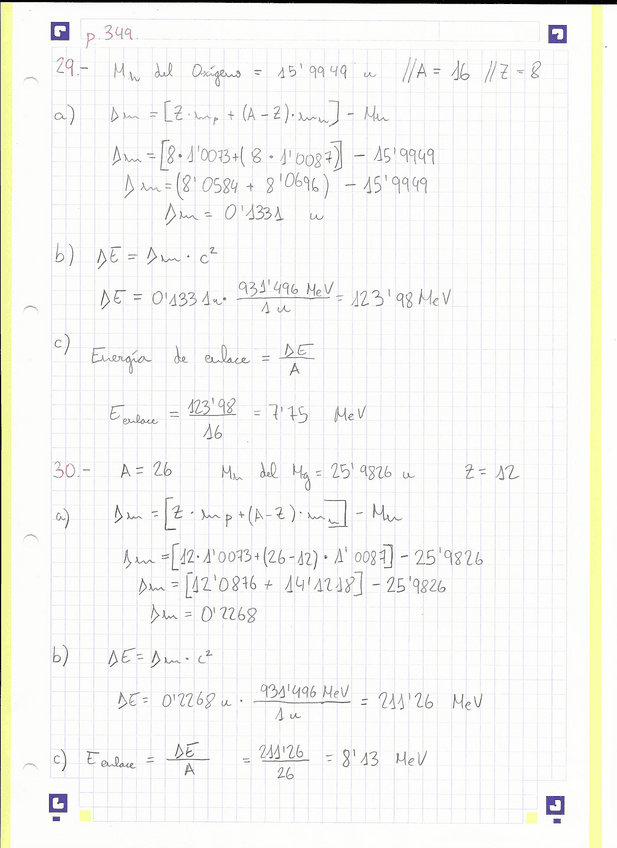 p. 349
29.- Mn del Oxígeno = 15'9949 u //A = 16 //Z = 8
a) Δm = [Z·mp + (A-Z)·mn] - Mn
Δm = [8·1'0073+(8·1'0087)] - 15'9949
Δm = (8'0584 + 8'0696) - 15'9949
Δm = 0'1331 u
b) ΔE = Δm · c²
ΔE = 0'1331u · 931'496 MeV / 1u = 123'98 MeV
c) Energía de enlace = ΔE / A
E enlace = 123'98 / 16 = 7'75 MeV
30.- A = 26 Mn del Mg = 25'9826 u Z = 12
a) Δm = [Z · mp + (A-Z) · mn] - Mn
Δm = [12·1'0073+(26-12)·1'0087] - 25'9826
Δm = [12'0876 + 14'1218] - 25'9826
Δm = 0'2268
b) ΔE = Δm · c²
ΔE = 0'2268 u · 931'496 MeV / 1u = 211'26 MeV
c) E enlace = ΔE / A = 211'26 / 26 = 8'13 MeV